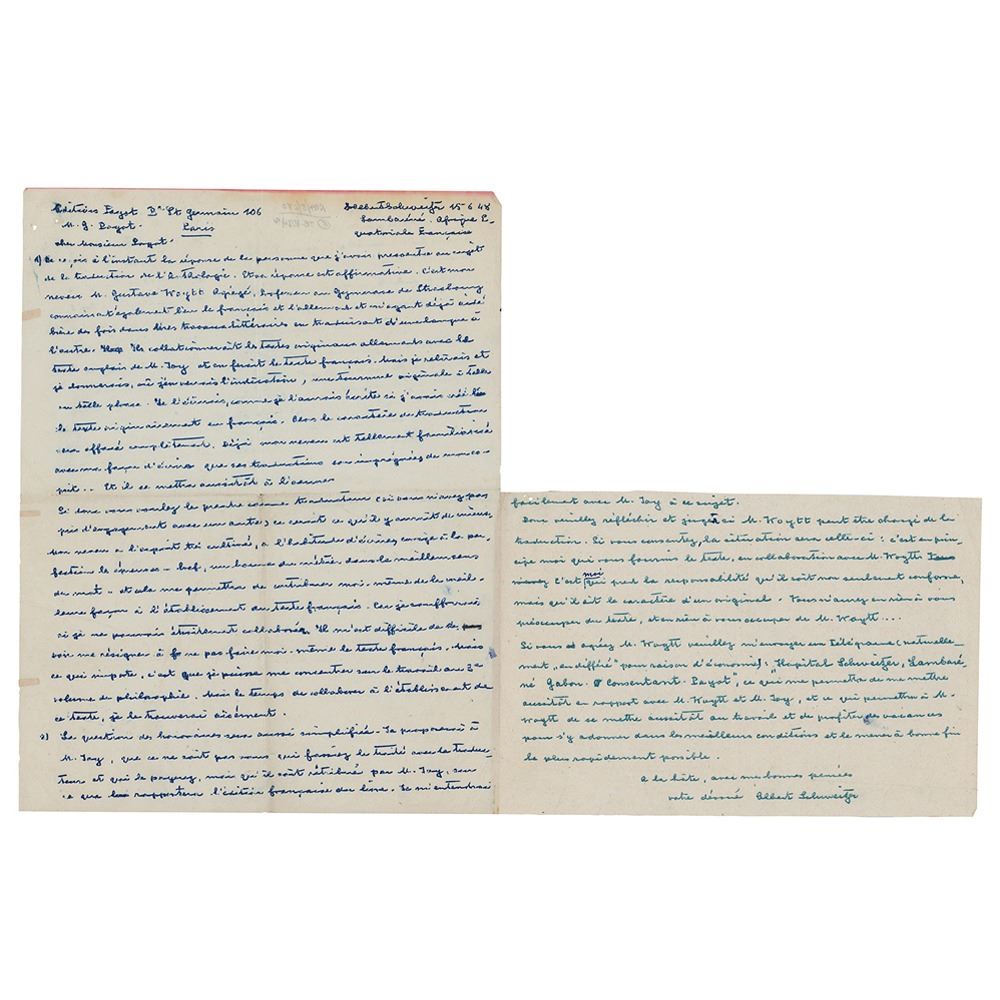 Editions Payot Bd St Germain 106
M. G. Payot. Paris
Albert Schweitzer 15 6 48
Lambaréné. Afrique E-
quatoriale Française
cher Monsieur Payot.
1) Je reçois à l'instant la réponse de la personne que j'avais pressentie au sujet
de la traduction de l'Anthologie. Et sa réponse est affirmative. C'est mon
neveu M. Gustave Woytt Agrégé, Professeur au Gymnase de Strasbourg
connaissant également bien le français et l'allemand et m'ayant déjà aidé
bien des fois dans des travaux littéraires en traduisant d'une langue à
l'autre. Il collationnerait les textes originaux allemands avec le
texte anglais de M. Joy et en ferait le texte français. Mais je relirais et
je donnerais, où j'en verrais l'indication, une tournure originale à telle
ou telle phrase. Je l'écrirais, comme je l'aurais écrite si j'avais créé
le texte originairement en français. Alors le caractère de traduction
sera effacé complètement. Déjà mon neveu est tellement familiarisé
avec ma façon d'écrire que ses traductions son imprégnées de mon es-
prit.. Et il se mettra aussitôt à l'oeuvre
Si donc vous voulez le prendre comme traducteur (si vous n'avez pas
pris d'engagement avec un autre) ce serait ce qu'il y aurait de mieux.
Mon neveu a l'esprit très cultivé, a l'habitude d'écrire, exige la per-
fection
du mot - et cela me permettra de contribuer moi-même de la meil-
leure façon à l'établissement du texte français. Car je souffrirais
si je ne pouvais étroitement collaborer. Il m'est difficile de de
voir me résigner à ne pas faire moi-même le texte français. Mais
ce qui importe, c'est que je puisse me concentrer sur le travail au 3e
volume de philosophie. Mais le temps de collaborer à l'établissement de
ce texte, je le trouverai aisément.
2) La question des honoraires sera aussi simplifiée. Je proposerai à
M. Joy, que ce ne soit pas vous qui fassiez le traité avec le traduc-
teur et qui le payerez, mais qu'il soit rétribué par M. Joy, sur
ce que lui rapportera l'édition française du livre. Je m'entendrai
facilement avec M. Joy à ce sujet.
Donc veuillez réfléchir et juger si M. Woytt peut être chargé de la
traduction. Si vous consentez, la situation sera celle-ci: c'est en prin-
cipe moi qui vous fournis le texte, en collaboration avec M. Woytt
c'est moi qui prend la responsabilité qu'il soit non seulement conforme,
mais qu'il ait le caractère d'un original. Vous n'aurez en rien à vous
préoccuper du texte, et en rien à vous occuper de M. Woytt...
Si vous agréez M. Woytt veuillez m'envoyer un Télégramme (naturelle-
ment "en différé" pour raison d'économie): "Hopital Schweitzer, Lambaré-
né Gabon. Consentant. Payot", ce qui me permettra de me mettre
aussitôt en rapport avec M. Woytt et M. Joy, et ce qui permettra à M.
Woytt de se mettre aussitôt au travail et de profiter de vacances
pour s'y adonner dans les meilleurs conditions et le mener à bonne fin
le plus rapidement possible.
A la hâte, avec mes bonnes pensées
votre dévoué Albert Schweitzer